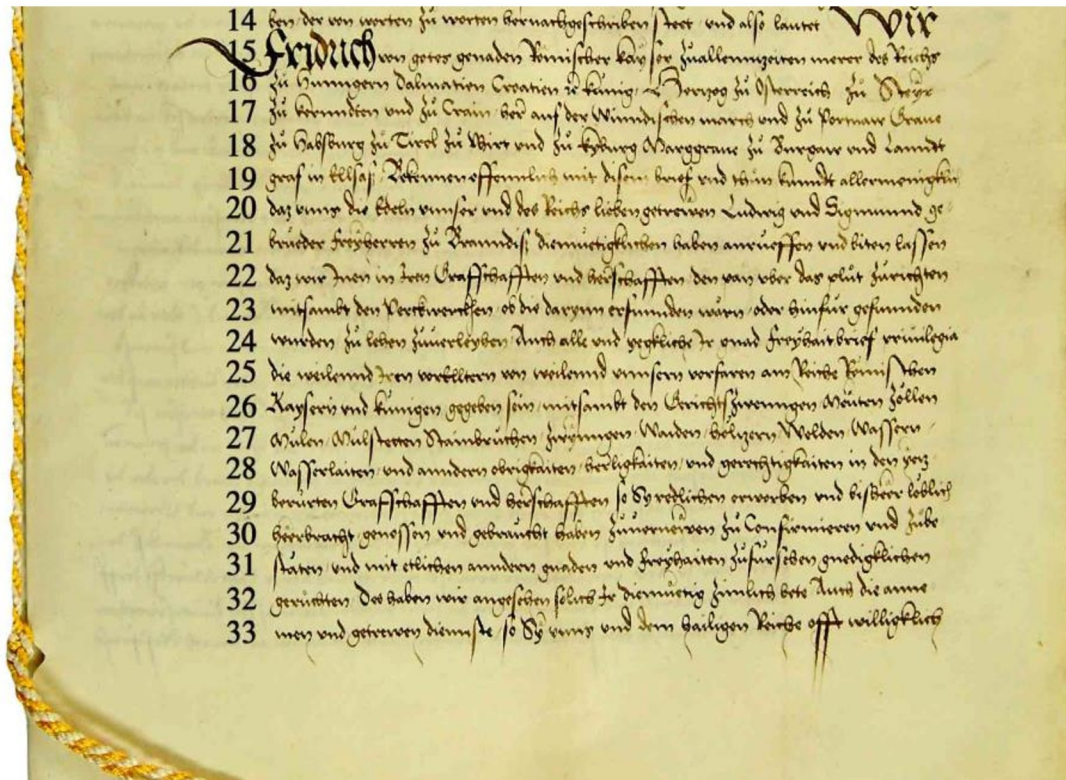 14 ben, der von worten zu worten hernachgeschriben steet, und also lautet Wir
15 Fridrich von gotes genaden Römischer kayser zuallennzeiten merer des Reichs
16 zu Hunngern Dalmatien Croatien ꝛc künig, Hertzog zu Osterreich zu Steyr
17 zu kernndten und zu Crain, herr auf der Winndischen march und zu Portnaw Grave
18 zu Habspurg zu Tirol zu Phirt und zu kyburg Marggrave zu Burgaw und Lanndt
19 graf in Ellsass, Bekennen offennlich mit disem brief und thun kunndt allermenigklich
20 daz unns die Edeln unnser und des Reichs lieben getrewen Ludwig und Sigmund ge
21 brueder freyherren zu Branndiss diemuetigklichen haben anrueffen und biten lassen
22 daz wir Inen in Iren Graffschafften und herschafften den pan uber das plut zurichten
23 mitsambt den Perckwerchen, ob die darynn erfunnden wärn, oder hinfur gefunnden
24 wurden, zu lehen zuverleyhen, Auch alle und yegkliche Ir gnad freyhait brief privilegia
25 die weilennd Iren vorElltern von weilennd unnsern vorfaren am Reiche Römischen
26 Kaysern und künigen gegeben sein, mitsambt den Gerichtzwenngen Meuten Zöllen
27 Mülen, Mülstetten Stainbruchen, zwyingen Waiden, höltzern Welden Wassern,
28 Wasserlaiten, und anndern obrigkaiten, herligkaiten, und gerechtigkaiten in den yetz
29 berurten Graffschafften und herschafften so Sy redlichen erworben und bisheer löblich
30 heerbracht, genossen und gebraucht haben zuvernewen zu Confirmieren und zube
31 stäten, und mit etlichen anndern gnaden und freyhaiten zufursehen gnedigklichen
32 geruchten Des haben wir angesehen solich Ir diemuetig zimlich bete Auch die anne
33 men und getrewen diennste, so Sy unns und dem hailigen Reiche offt willigklich